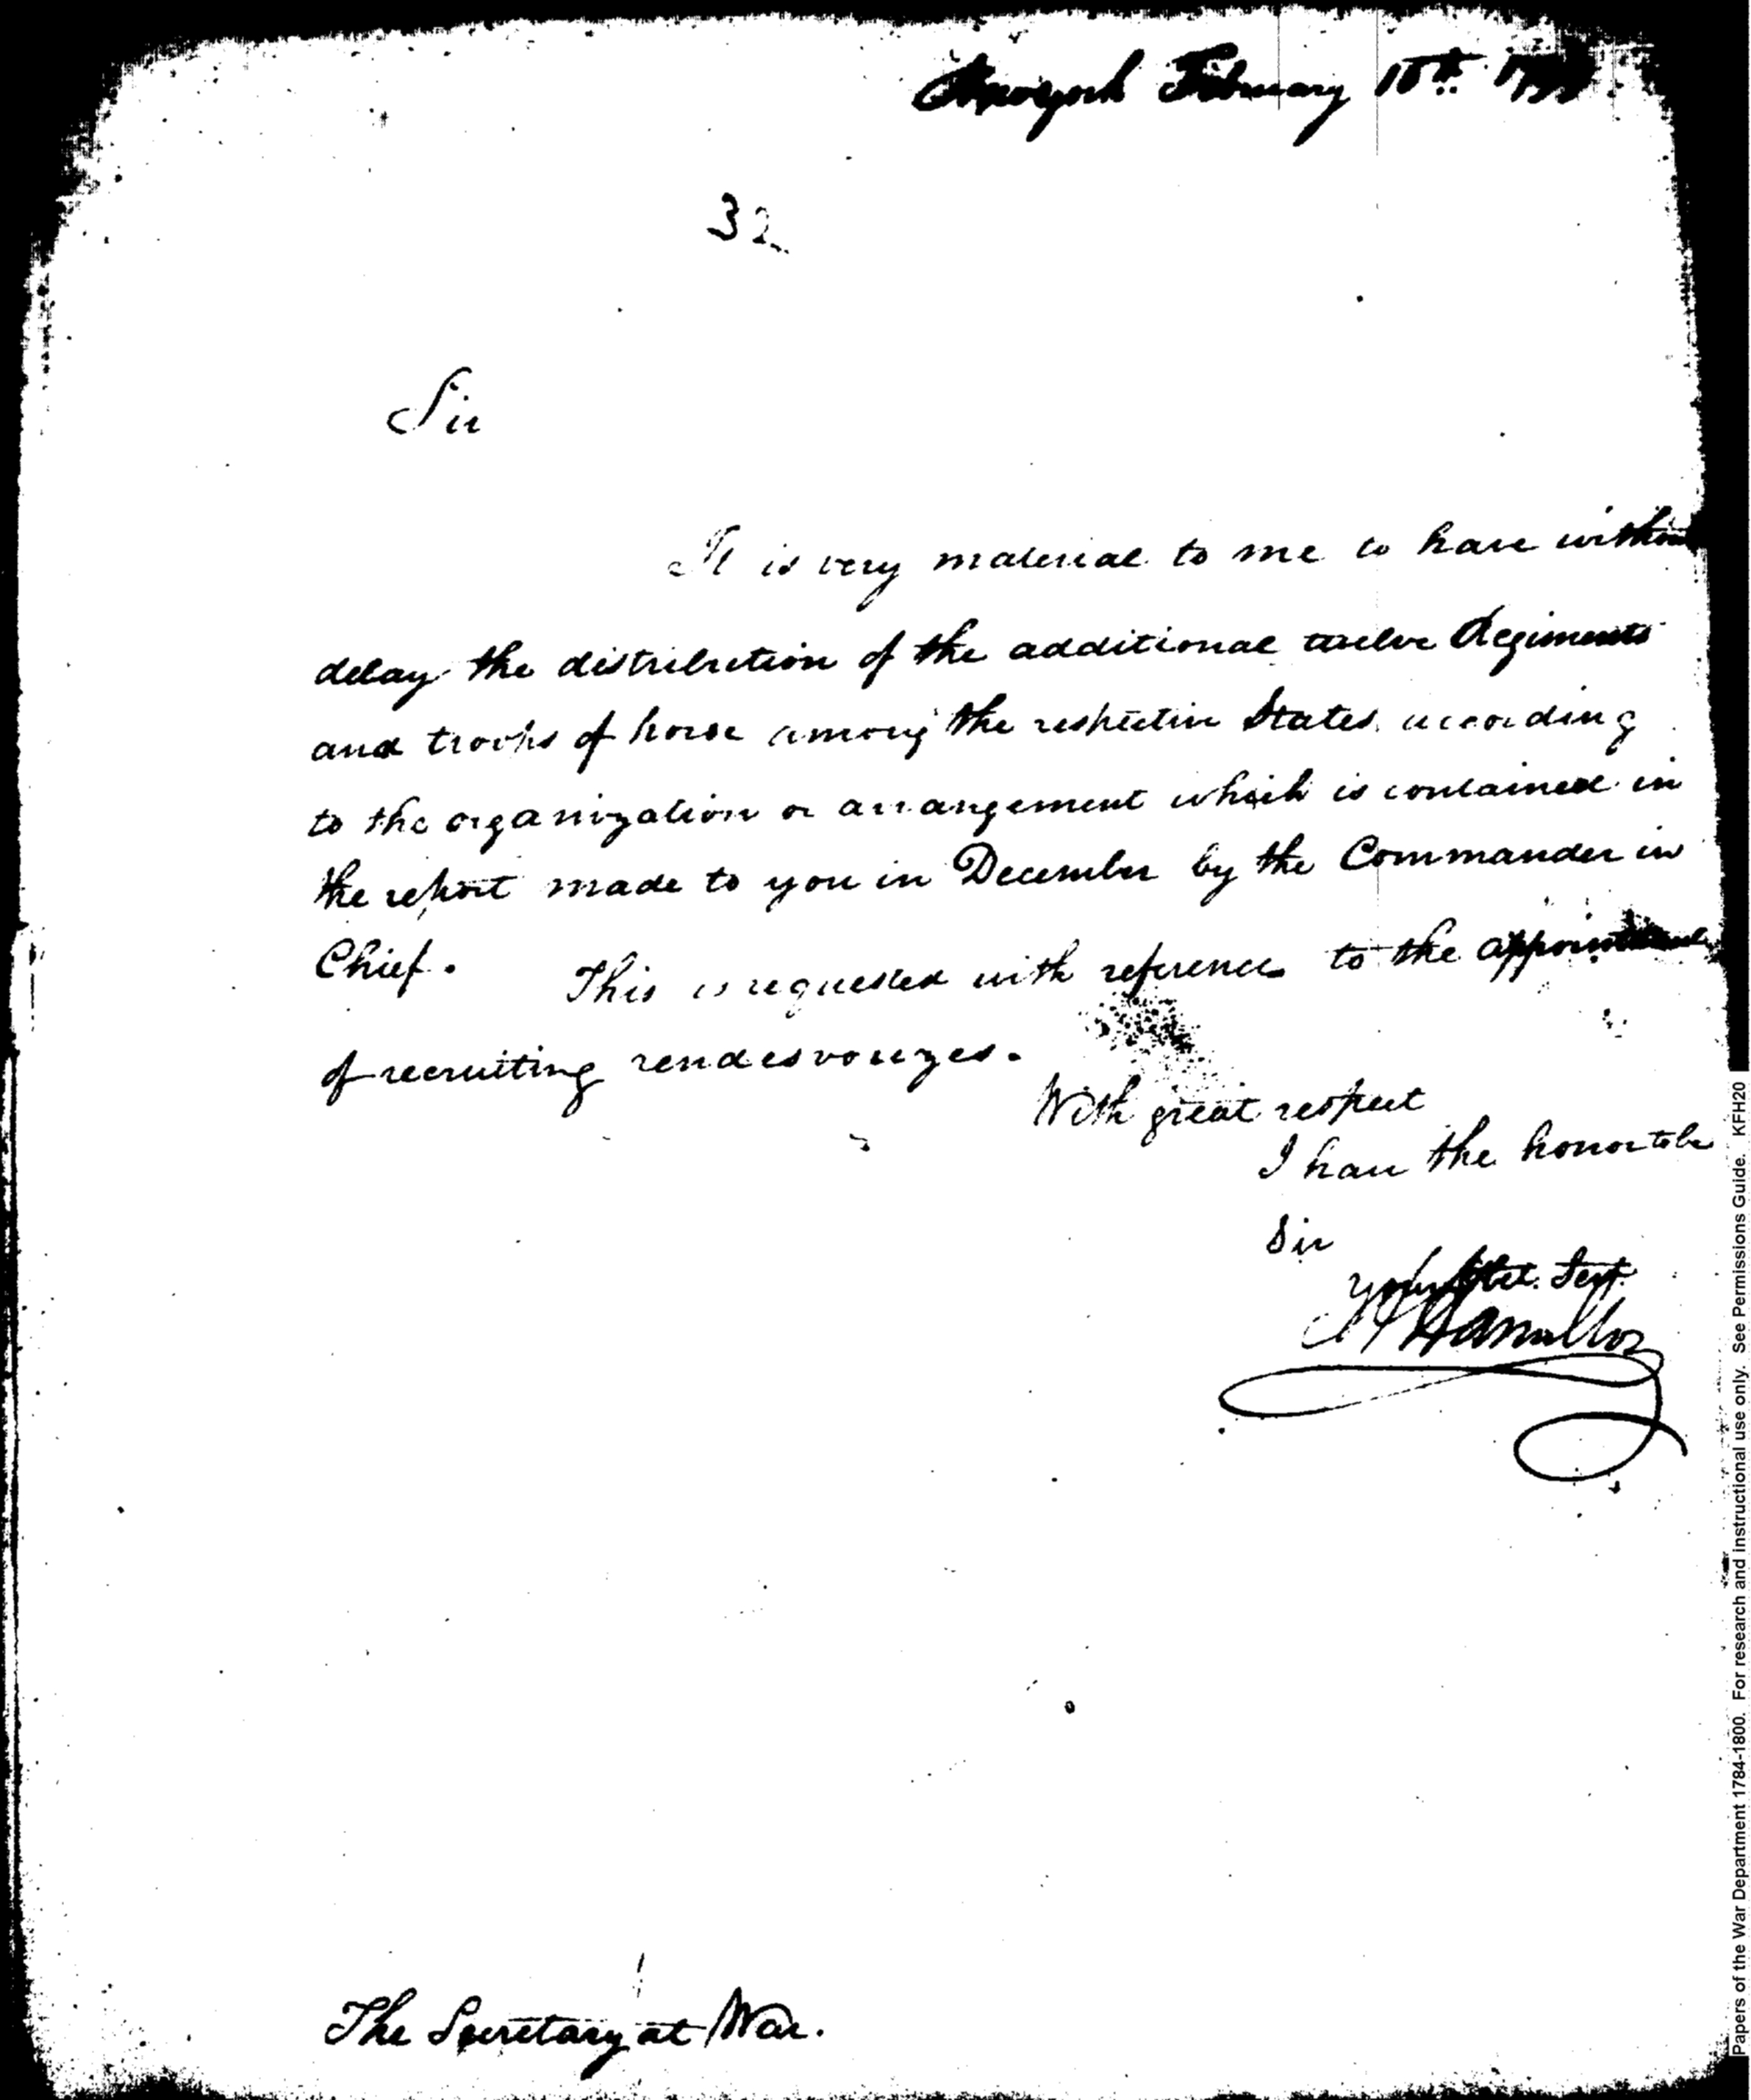 Newyork February 15th. 1799
32
Sir
It is very material to me to have without
delay the distribution of the additional twelve Regiments
and troops of horse among the respective States, according
to the organization or arrangement which is contained in
the report made to you in December by the Commander in
Chief. This is requested with reference to the appointment
of recruiting rendesvouzes.
With great respect
I have the honor to be
Sir
Your Obt. Sert.
A Hamilton
The Secretary at War.
Papers of the War Department 1784-1800. For research and instructional use only. See Permissions Guide. KFH20